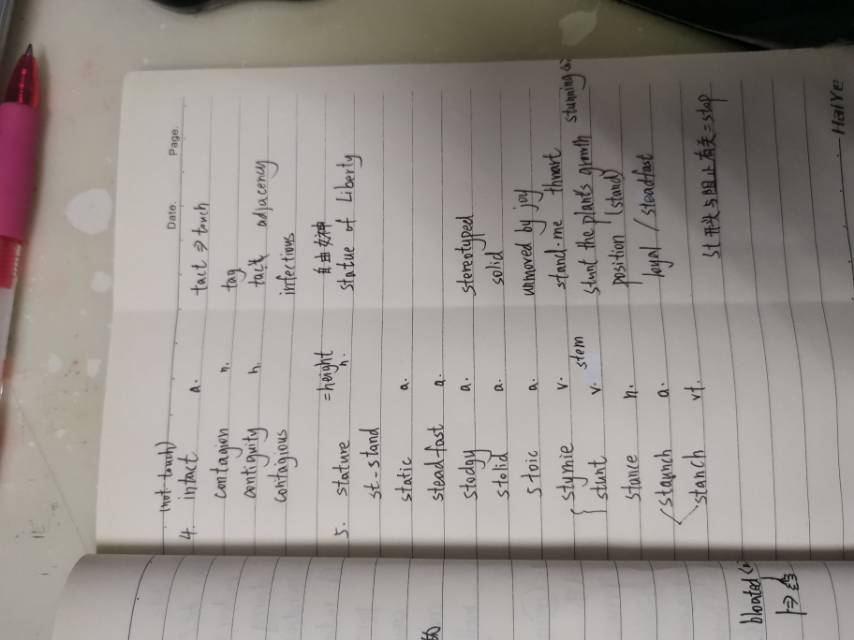 Date. Page.
(not touch)
4. intact a. tact ⇒ touch
contagion n. tag
contiguity n. tact adjacency
contagious infectious
5. stature =height n. 自由女神 statue of Liberty
st-stand
static a.
steadfast a.
stodgy a. stereotyped
stolid a. solid
stoic a. unmoved by joy
stymie v. stand-me thwart
stunt v. stem stunt the plants growth stunning
stance n. position (stand)
staunch a. loyal / steadfast
stanch vt.
st 开头与阻止有关=stop
HaiYe
bloated